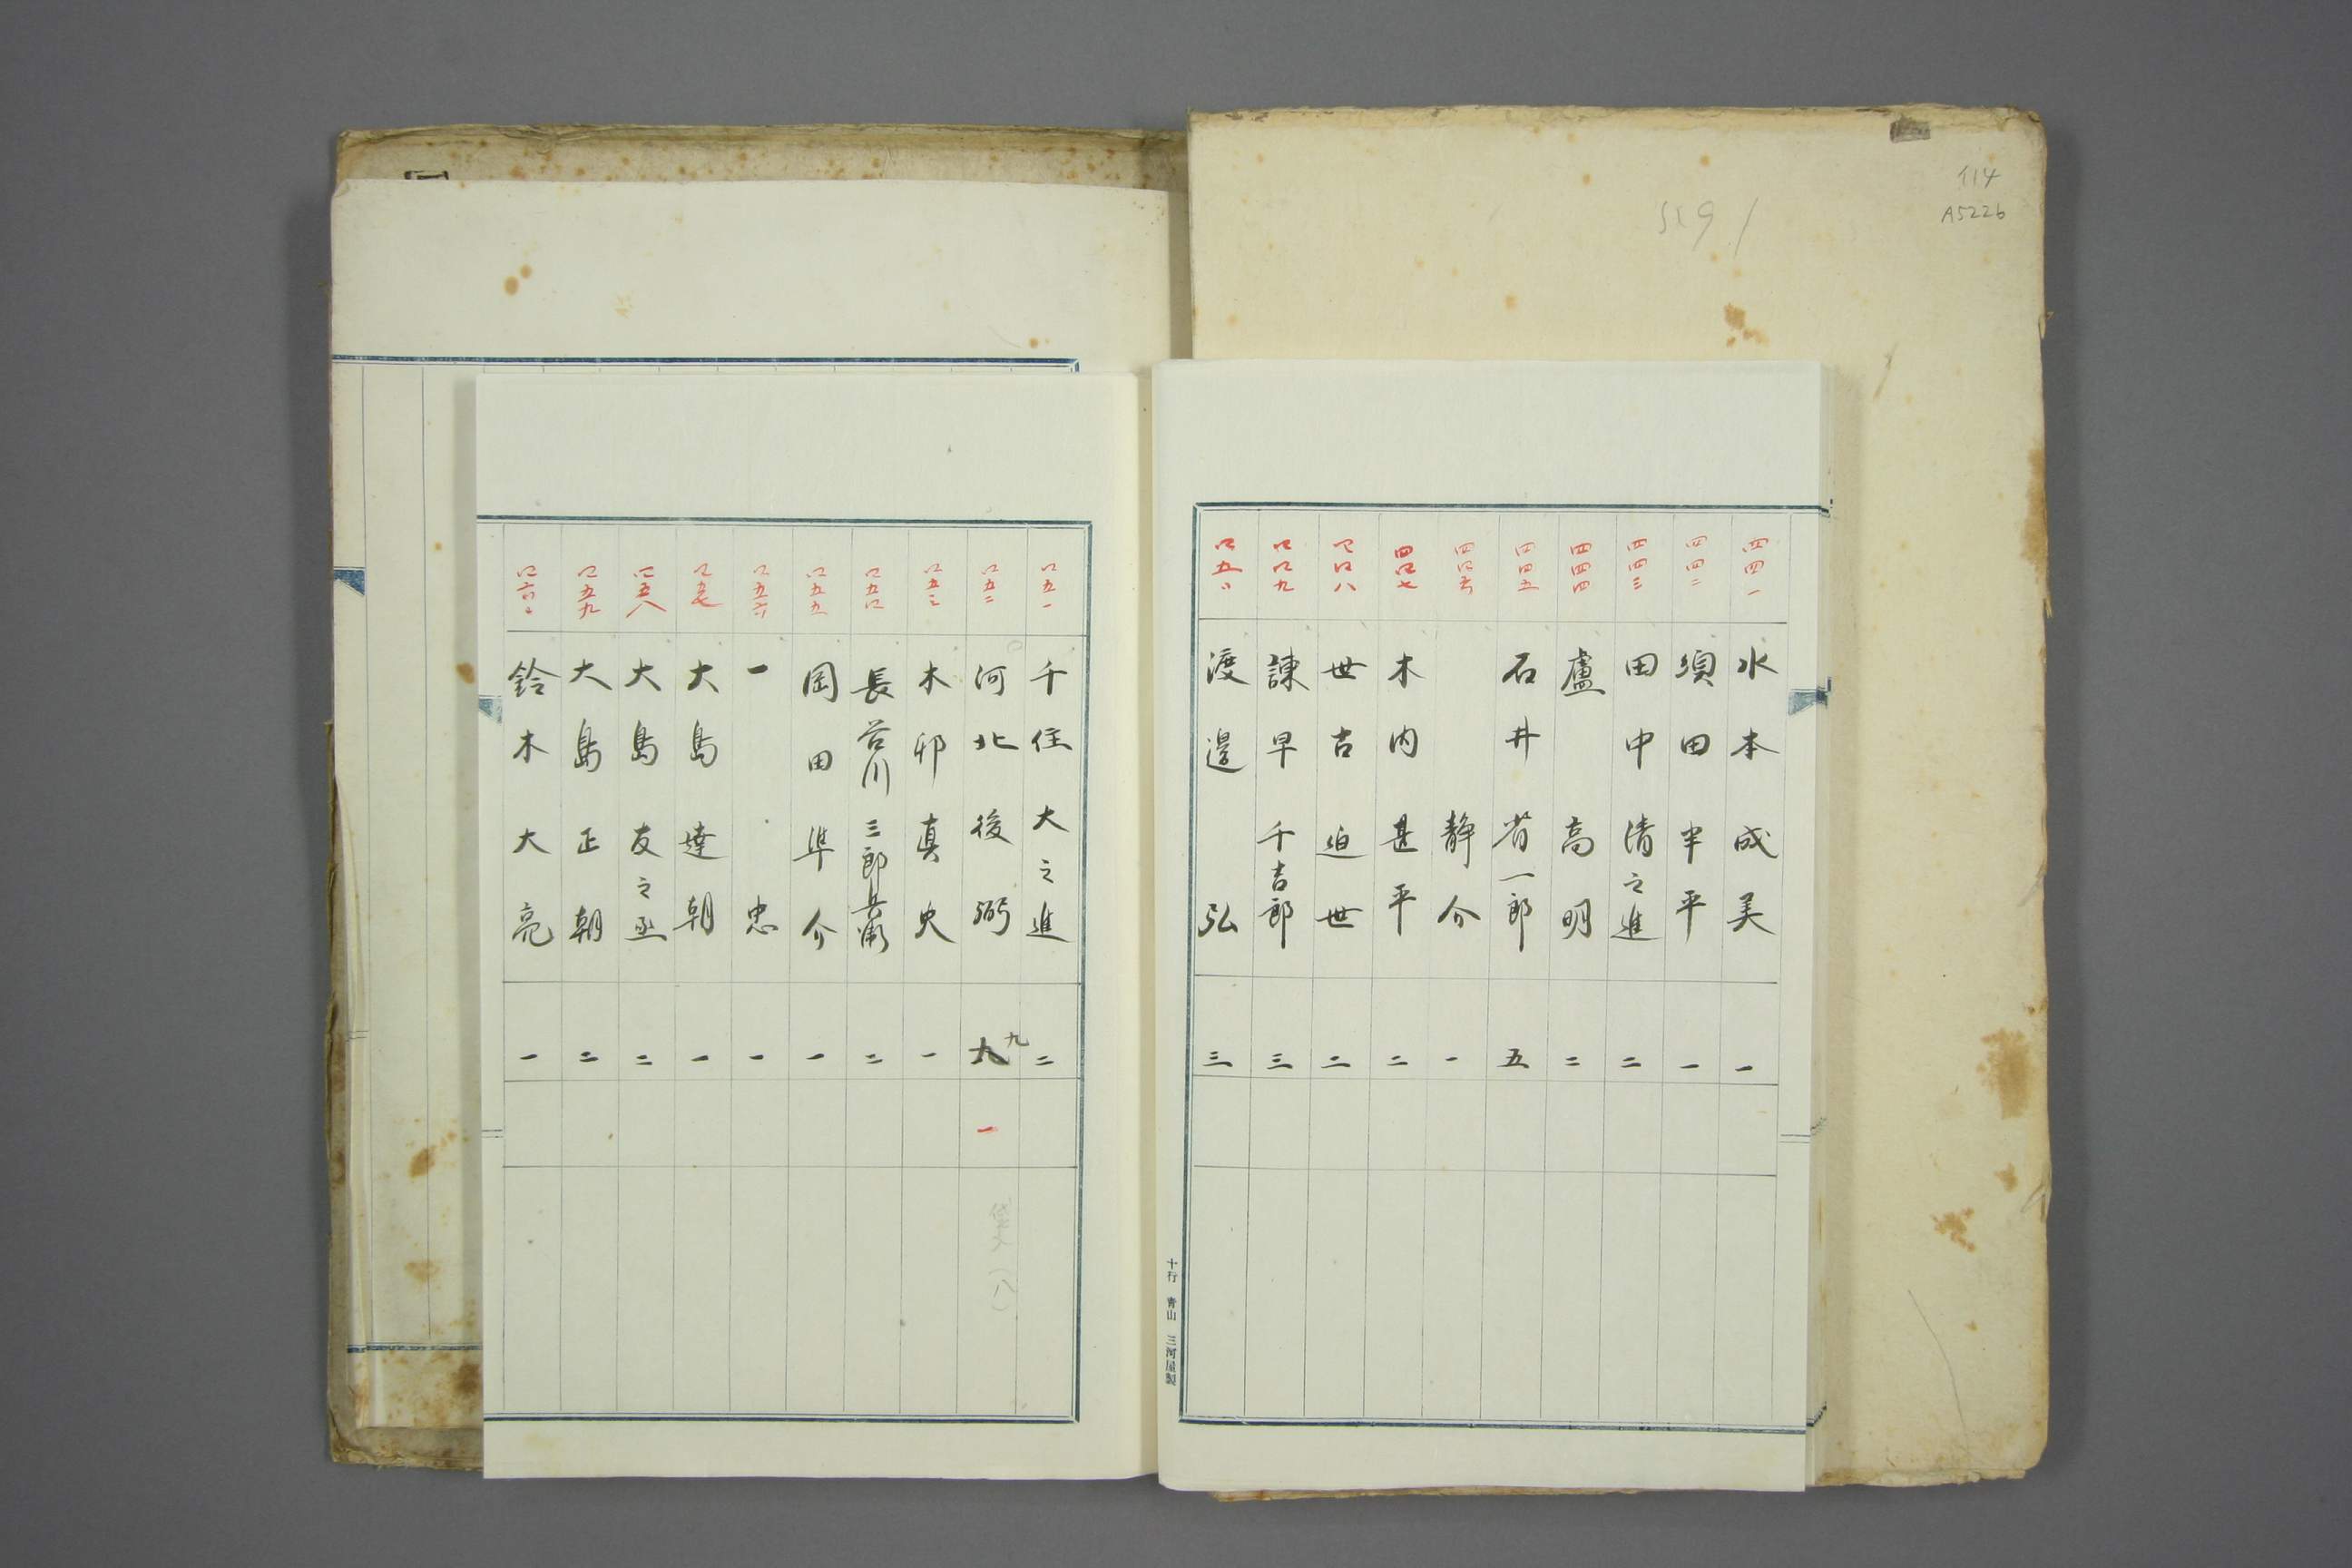 114
A5226
四四一 水本成美 一
四四二 須田半平 一
四四三 田中清之進 二
四四四 盧高明 二
四四五 石井省一郎 五
四四六 静介 一
四四七 木内甚平 二
四四八 世古迫世 二
四四九 諫早千吉郎 三
四五〇 渡邊弘 三
十行 青山 三河屋製
四五一 千住大之進 二
四五二 河北後彌 九 九 一
四五三 木卯真史 一
四五四 長谷川三郎兵衛 二
四五五 岡田準介 一
四五六 一忠 一
四五七 大島達朝 一
四五八 大島友之丞 二
四五九 大島正朝 二
四六〇 鈴木大亮 一